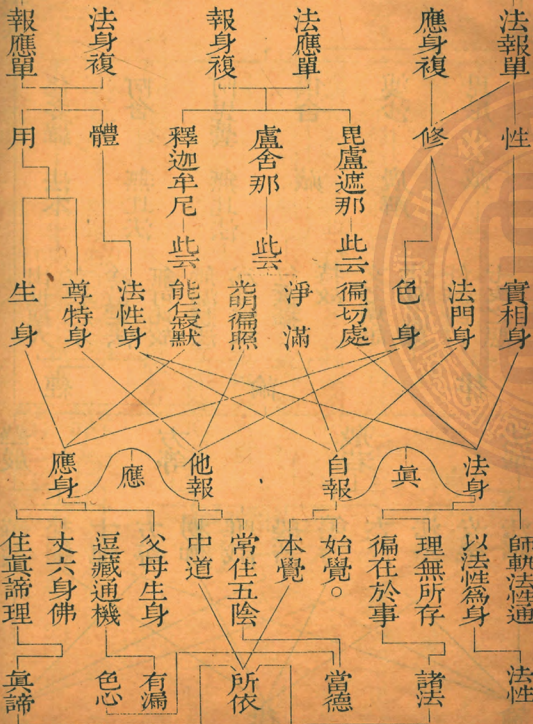 法報單
應身複
法應單
報身複
法身複
報應單
性
修
毘盧遮那 此云徧一切處
盧舍那 此云
釋迦牟尼 此云能仁寂默
體
用
實相身
法門身
色身
淨滿
光明徧照
法性身
尊特身
生身
法身
真
自報
他報
應
應身
師軌法性通
以法性為身
理無所存
徧在於事
始覺。
本覺
常住五陰
中道
父母生身
逗藏通機
丈六身佛
住真諦理
法性
諸法
當德
所依
有漏
色心
真諦